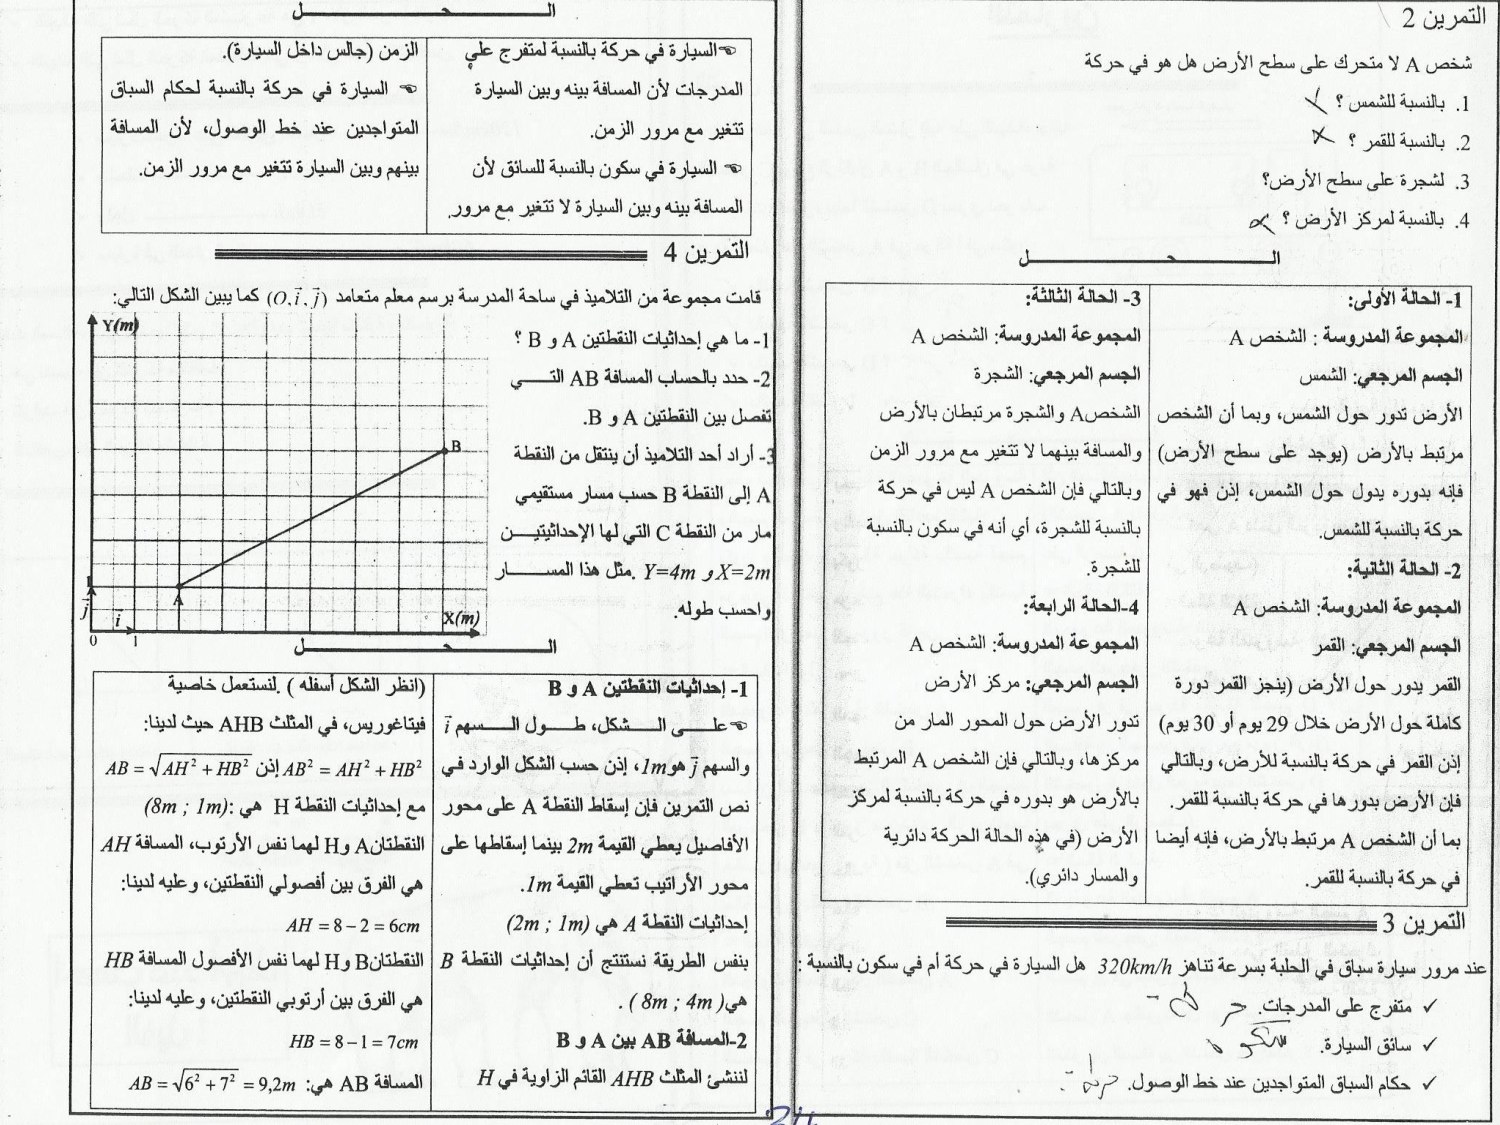 التمرين 2
شخص A لا متحرك على سطح الأرض هل هو في حركة
1. بالنسبة للشمس ؟
2. بالنسبة للقمر ؟
3. لشجرة على سطح الأرض؟
4. بالنسبة لمركز الأرض ؟
الـحـل
1- الحالة الأولى:
المجموعة المدروسة : الشخص A
الجسم المرجعي: الشمس
الأرض تدور حول الشمس، وبما أن الشخص
مرتبط بالأرض (يوجد على سطح الأرض)
فإنه بدوره يدول حول الشمس، إذن فهو في
حركة بالنسبة للشمس.
2- الحالة الثانية:
المجموعة المدروسة: الشخص A
الجسم المرجعي: القمر
القمر يدور حول الأرض (ينجز القمر دورة
كاملة حول الأرض خلال 29 يوم أو 30 يوم)
إذن القمر في حركة بالنسبة للأرض، وبالتالي
فإن الأرض بدورها في حركة بالنسبة للقمر.
بما أن الشخص A مرتبط بالأرض، فإنه أيضا
في حركة بالنسبة للقمر.
3- الحالة الثالثة:
المجموعة المدروسة: الشخص A
الجسم المرجعي: الشجرة
الشخصA والشجرة مرتبطان بالأرض
والمسافة بينهما لا تتغير مع مرور الزمن
وبالتالي فإن الشخص A ليس في حركة
بالنسبة للشجرة، أي أنه في سكون بالنسبة
للشجرة.
4-الحالة الرابعة:
المجموعة المدروسة: الشخص A
الجسم المرجعي: مركز الأرض
تدور الأرض حول المحور المار من
مركزها، وبالتالي فإن الشخص A المرتبط
بالأرض هو بدوره في حركة بالنسبة لمركز
الأرض (في هذه الحالة الحركة دائرية
والمسار دائري).
التمرين 3
عند مرور سيارة سباق في الحلبة بسرعة تناهز 320km/h هل السيارة في حركة أم في سكون بالنسبة :
✓ متفرج على المدرجات. حركة
✓ سائق السيارة. سكون
✓ حكام السباق المتواجدين عند خط الوصول. حركة
الـحـل
السيارة في حركة بالنسبة لمتفرج على
المدرجات لأن المسافة بينه وبين السيارة
تتغير مع مرور الزمن.
السيارة في سكون بالنسبة للسائق لأن
المسافة بينه وبين السيارة لا تتغير مع مرور.
الزمن (جالس داخل السيارة).
السيارة في حركة بالنسبة لحكام السباق
المتواجدين عند خط الوصول، لأن المسافة
بينهم وبين السيارة تتغير مع مرور الزمن.
التمرين 4
قامت مجموعة من التلاميذ في ساحة المدرسة برسم معلم متعامد (O,i⃗,j⃗) كما يبين الشكل التالي:
1- ما هي إحداثيات النقطتين A و B ؟
2- حدد بالحساب المسافة AB التـــي
تفصل بين النقطتين A و B.
3- أراد أحد التلاميذ أن ينتقل من النقطة
A إلى النقطة B حسب مسار مستقيمي
مار من النقطة C التي لها الإحداثيتيـــن
X=2m و Y=4m .مثل هذا المســـار
واحسب طوله.
Y(m)
B
A
1
j⃗
i⃗
X(m)
0
1
الـحـل
1- إحداثيات النقطتين A و B
علــى الــشكل، طــول الــسهم i⃗
والسهم j⃗ هو1m، إذن حسب الشكل الوارد في
نص التمرين فإن إسقاط النقطة A على محور
الأفاصيل يعطي القيمة 2m بينما إسقاطها على
محور الأراتيب تعطي القيمة 1m.
إحداثيات النقطة A هي (2m ; 1m)
بنفس الطريقة نستنتج أن إحداثيات النقطة B
هي( 8m ; 4m ) .
2-المسافة AB بين A و B
لننشئ المثلث AHB القائم الزاوية في H
(انظر الشكل أسفله ) .لنستعمل خاصية
فيتاغوريس، في المثلث AHB حيث لدينا:
AB² = AH² + HB² إذن AB = √(AH² + HB²)
مع إحداثيات النقطة H هي :(8m ; 1m)
النقطتانA وH لهما نفس الأرتوب، المسافة AH
هي الفرق بين أفصولي النقطتين، وعليه لدينا:
AH = 8 − 2 = 6cm
النقطتانB وH لهما نفس الأفصول المسافة HB
هي الفرق بين أرتوبي النقطتين، وعليه لدينا:
HB = 8 − 1 = 7cm
المسافة AB هي: AB = √(6² + 7²) = 9,2m